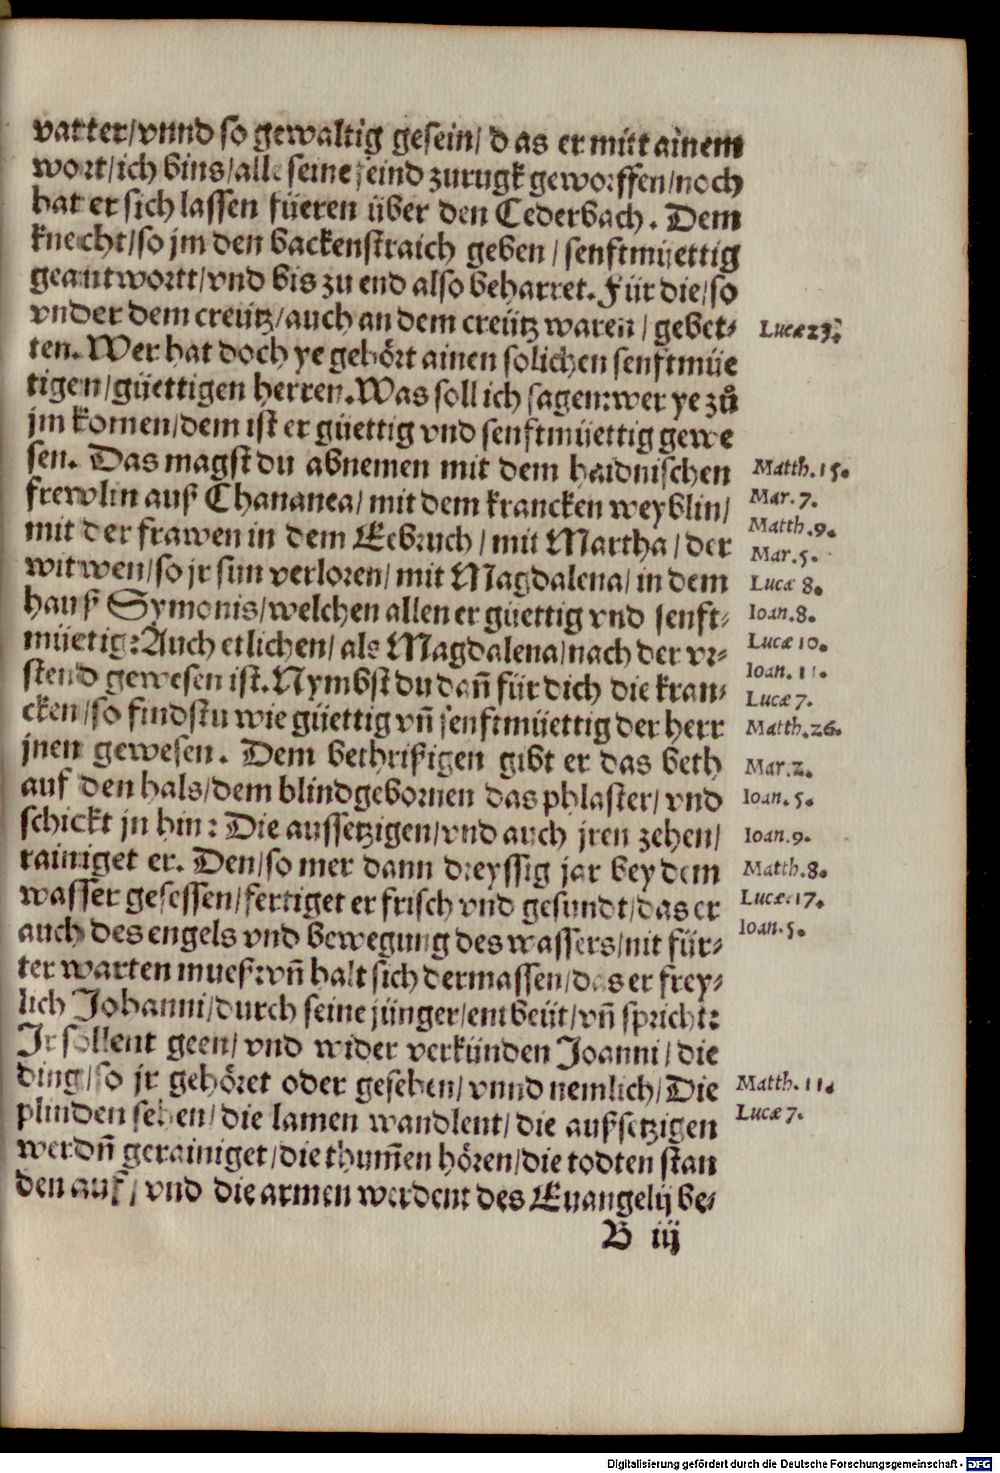 vatter/vnnd so gewaltig gesein/ das er mitt ainem
wort/ich bins/alle seine feind zurugk geworffen/noch
hat er sich lassen füeren über den Cederbach. Dem
knecht/so jm den backenstraich geben / senftmüettig
geantwortt/vnd bis zu end also beharret. Für die/so
vnder dem creütz/auch an dem creütz waren / gebet-
Lucæ 23.
ten. Wer hat doch ye gehört ainen solichen senftmüe
tigen/güettigen herren. Was soll ich sagen:wer ye zů
jm komen/dem ist er güettig vnd senftmüettig gewe
sen. Das magst du abnemen mit dem haidnischen
Matth. 15.
frewlin auß Chananea/mit dem krancken weyblin/
Mar. 7.
mit der frawen in dem Eebruch / mit Martha / der
Matth. 9.
Mar. 5.
witwen/so jr sun verloren/ mit Magdalena/ in dem
Lucæ 8.
hauß Symonis/welchen allen er güettig vnd senft-
Ioan. 8.
müetig: Auch etlichen/ als Magdalena/nach der vr-
Lucæ 10.
Ioan. 11.
stend gewesen ist. Nymbst du dañ für dich die kran-
Lucæ 7.
cken/so findstu wie güettig vñ senftmüettig der herr
Matth. 26.
jnen gewesen. Dem bethrißigen gibt er das beth
Mar. 2.
auf den hals/dem blindgebornen das phlaster/ vnd
Ioan. 5.
schickt jn hin: Die aussetzigen/vnd auch jren zehen/
Ioan. 9.
rainiget er. Den/so mer dann dreyssig jar bey dem
Matth. 8.
wasser gesessen/fertiget er frisch vnd gesundt/das er
Lucæ. 17.
auch des engels vnd bewegung des wassers/nit für-
Ioan. 5.
ter warten mueß:vñ halt sich dermassen/das er frey-
lich Johanni/durch seine jünger/entbeüt/vñ spricht:
Jr sollent geen/ vnd wider verkünden Joanni / die
ding/so jr gehöret oder gesehen/ vnnd nemlich/ Die
Matth. 11.
plinden sehen/ die lamen wandlent/ die außsetzigen
Lucæ 7.
werdñ gerainiget/die thum̃en hören/die todten stan
den auf/ vnd die armen werdent des Euangelij be-
B iij
Digitalisierung gefördert durch die Deutsche Forschungsgemeinschaft - DFG